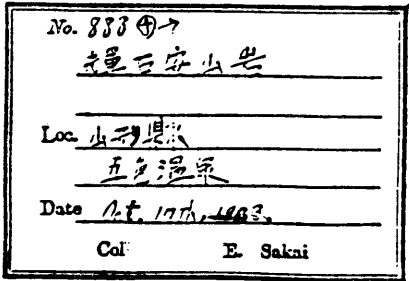 No. 833 ④→
安山岩
Loc. 山形縣
五色温泉
Date Oct. 17th,
Col E. Sakai